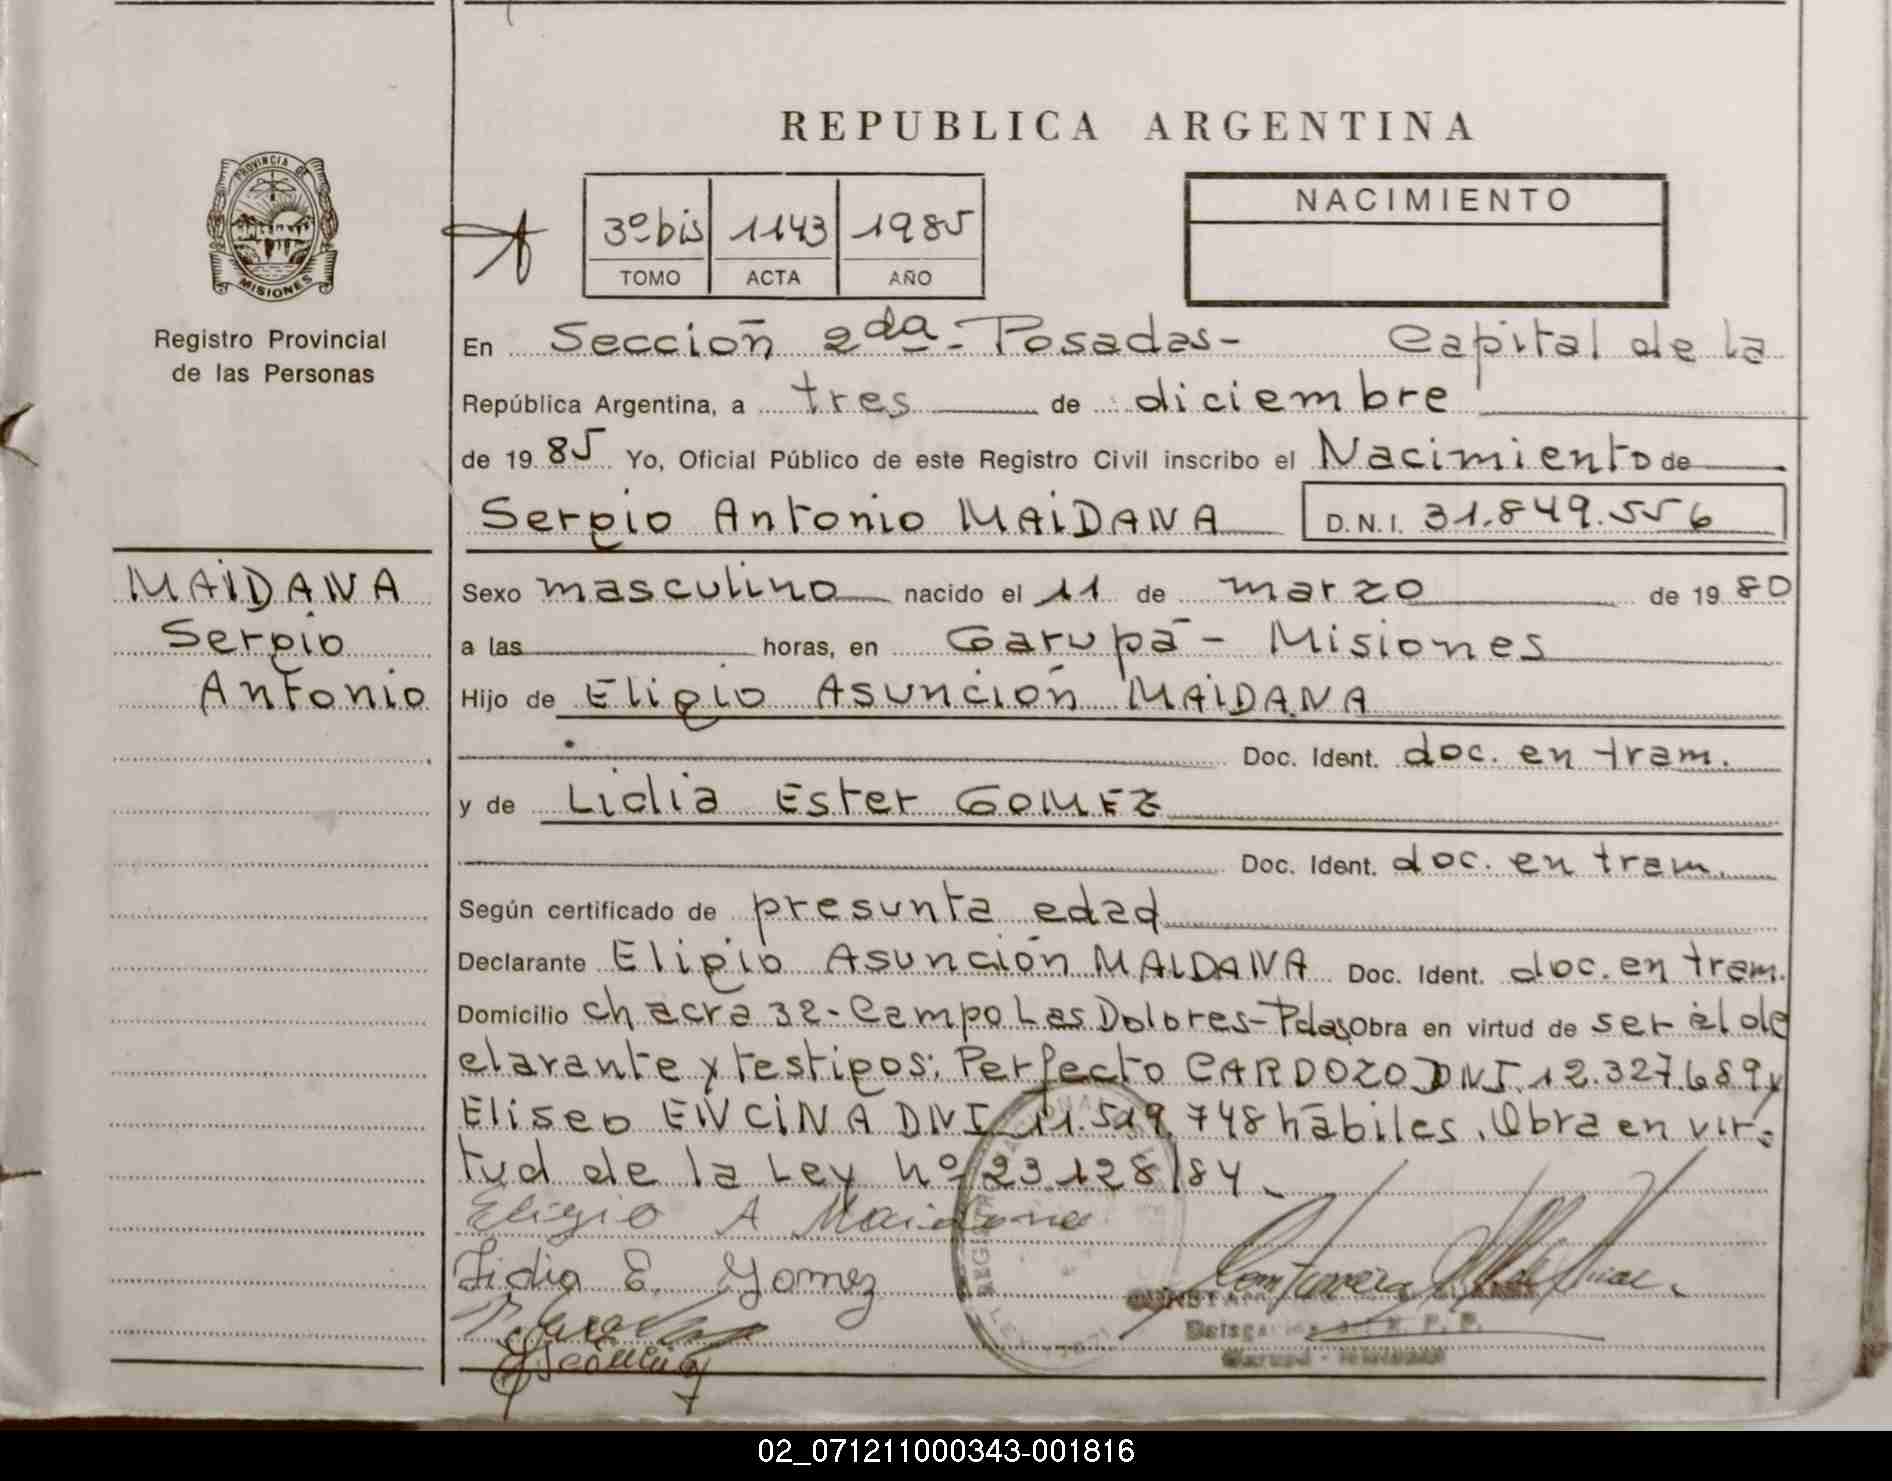 REPUBLICA ARGENTINA
PROVINCIA DE
MISIONES
Registro Provincial
de las Personas
3º bis 1143 1985
TOMO ACTA AÑO
NACIMIENTO
En Sección 2da - Posadas - Capital de la
República Argentina, a tres de diciembre
de 1985 Yo, Oficial Público de este Registro Civil inscribo el Nacimiento de
Sergio Antonio MAIDANA D.N.I. 31.849.556
MAIDANA
Sergio
Antonio
Sexo masculino nacido el 11 de marzo de 1980
a las horas, en Garupá - Misiones
Hijo de Eligio Asunción MAIDANA
Doc. Ident. doc. en tram.
y de Lidia Ester GOMEZ
Doc. Ident. doc. en tram.
Según certificado de presunta edad
Declarante Eligio Asunción MAIDANA Doc. Ident. doc. en tram.
Domicilio chacra 32 - Campo Las Dolores - Pdas Obra en virtud de ser él de
clarante y testigos: Perfecto CARDOZO DNI 12.327.689 y
Eliseo ENCINA DNI 11.519.748 hábiles. Obra en vir-
tud de la Ley nº 23.128/84.
Eligio A Maidana
Lidia E. Gomez
02_071211000343-001816